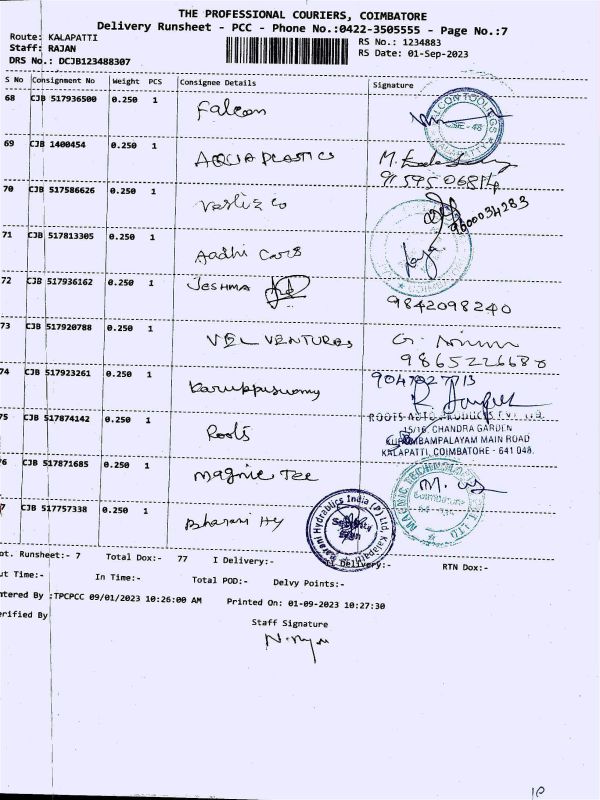 THE PROFESSIONAL COURIERS, COIMBATORE
Delivery Runsheet - PCC - Phone No.:0422-3505555 - Page No.:7
Route: KALAPATTI
RS No.: 1234883
Staff: RAJAN
RS Date: 01-Sep-2023
DRS No.: DCJB123488307
S No Consignment No Weight PCS Consignee Details Signature
68 CJB 517936500 0.250 1 Falcon
69 CJB 1400454 0.250 1 AQUA PLASTICS M.
70 CJB 517586626 0.250 1 9600034283
71 CJB 517813305 0.250 1 Aadhi Cars
72 CJB 517936162 0.250 1 JESHMA 9842098240
73 CJB 517920788 0.250 1 VEL VENTURES G.
74 CJB 517923261 0.250 1 Karuppuswamy
75 CJB 517874142 0.250 1 Roots
ROOTS AUTO PRODUCTS PVT. LTD.
15/16, CHANDRA GARDEN
KURUMBAMPALAYAM MAIN ROAD
KALAPATTI, COIMBATORE - 641 048.
76 CJB 517871685 0.250 1 Magnic Tec M.
7 CJB 517757338 0.250 1 Bharani Hy
Barani Hydraulics India (P) Ltd, Kalapatti
Security
Sign
ot. Runsheet:- 7 Total Dox:- 77 I Delivery:- Delivery:- RTN Dox:-
ut Time:- In Time:- Total POD:- Delvy Points:-
ntered By :TPCPCC 09/01/2023 10:26:00 AM Printed On: 01-09-2023 10:27:30
erified By
Staff Signature
10